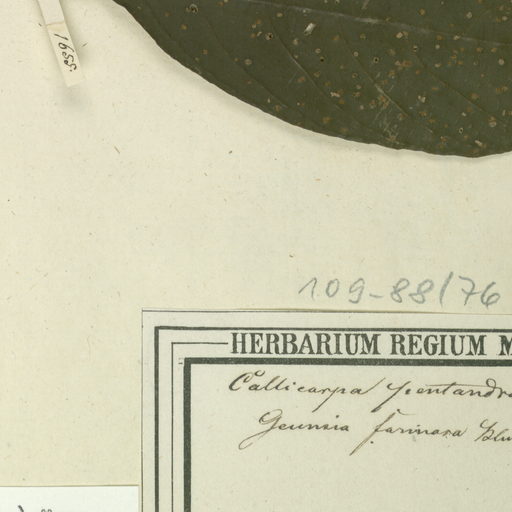 1655.
109-88/76
HERBARIUM REGIUM M
Callicarpa pentandra
Geunsia farinosa Blu